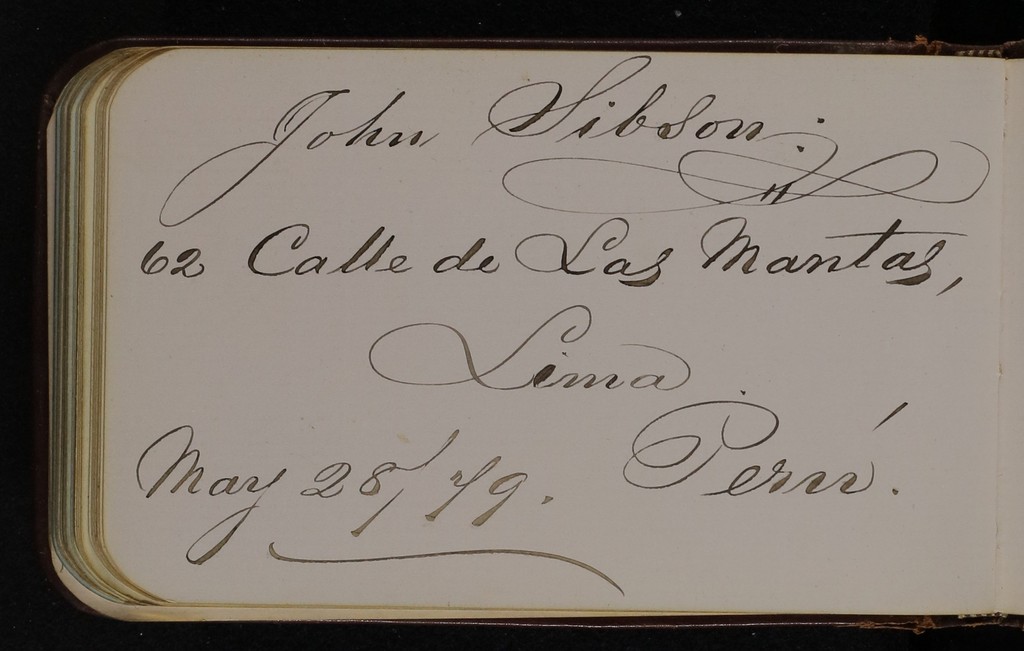 John Sibson.
62 Calle de Las Mantas,
Lima
Perú.
May 28/79.